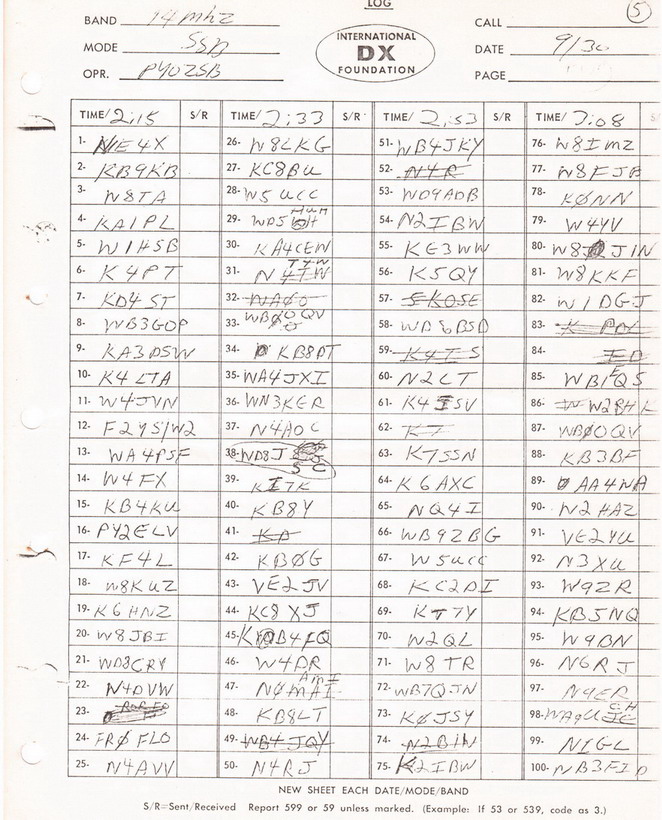 LOG
5
BAND 14 mhz
CALL
MODE SSB
INTERNATIONAL
DX
FOUNDATION
DATE 9/30
OPR. PY0ZSB
PAGE
TIME/ 2:15 S/R TIME/ 2:33 S/R TIME/ 2:53 S/R TIME/ 3:08 S/
1- N1E4X 26- W8LKG 51- WB4JKY 76- W8IMZ
2- KB9KB 27- KC8BU 52- N4R 77- W8FJB
3- W8TA 28- W5UCC 53- WD9ADB 78- KØNN
4- KA1PL 29- WD5 HUH 54- N2IBW 79- W4YV
5- W1HSB 30- KA4CEW 55- KE3WW 80- W8 JIN
6- K4PT 31- N4TW TYW 56- K5QY 81- W8KKF
7- KD4ST 32- WAØO 57- 5K0SE 82- W1DGJ
8- WB3GOP 33- WBØOQV 58- WD8BSD 83- K
9- KA3DSW 34- KB8DT 59- K4TS 84-
10- K4LTA 35- WA4JXI 60- N2CT 85- WB1FQS
11- W4JVN 36- WN3KER 61- K4ISV 86- W2BHK
12- F2YS/W2 37- N4AOC 62- K7 87- WBØOQV
13- WA4PSF 38- WD8J SC 63- K7SSN 88- KB3BF
14- W4FX 39- KI7K 64- K6AXC 89- AA4NA
15- KB4KU 40- KB8Y 65- NQ4I 90- N2HAZ
16- PY2ELV 41- KA 66- WB9ZBG 91- VE2YU
17- KF4L 42- KBØG 67- W5UCC 92- N3XU
18- W8KUZ 43- VE2JV 68- KC2DI 93- W9ZR
19- K6HNZ 44- KC8XJ 69- KT7Y 94- KB5NQ
20- W8JBI 45- K B4FQ 70- W2QL 95- W9BN
21- WD8CRY 46- W4DR 71- W8TR 96- N6RJ
22- N4DVW 47- NØMAI AMI 72- WB7QJN 97- N9ER
23- 48- KB8LT 73- KØJSY 98- WA9U CH
24- FRØFLO 49- WB4JQY 74- N2BIN 99- N1GL
25- N4AVV 50- N4RJ 75- K2IBW 100- NB3FID
NEW SHEET EACH DATE/MODE/BAND
S/R=Sent/Received Report 599 or 59 unless marked. (Example: If 53 or 539, code as 3.)